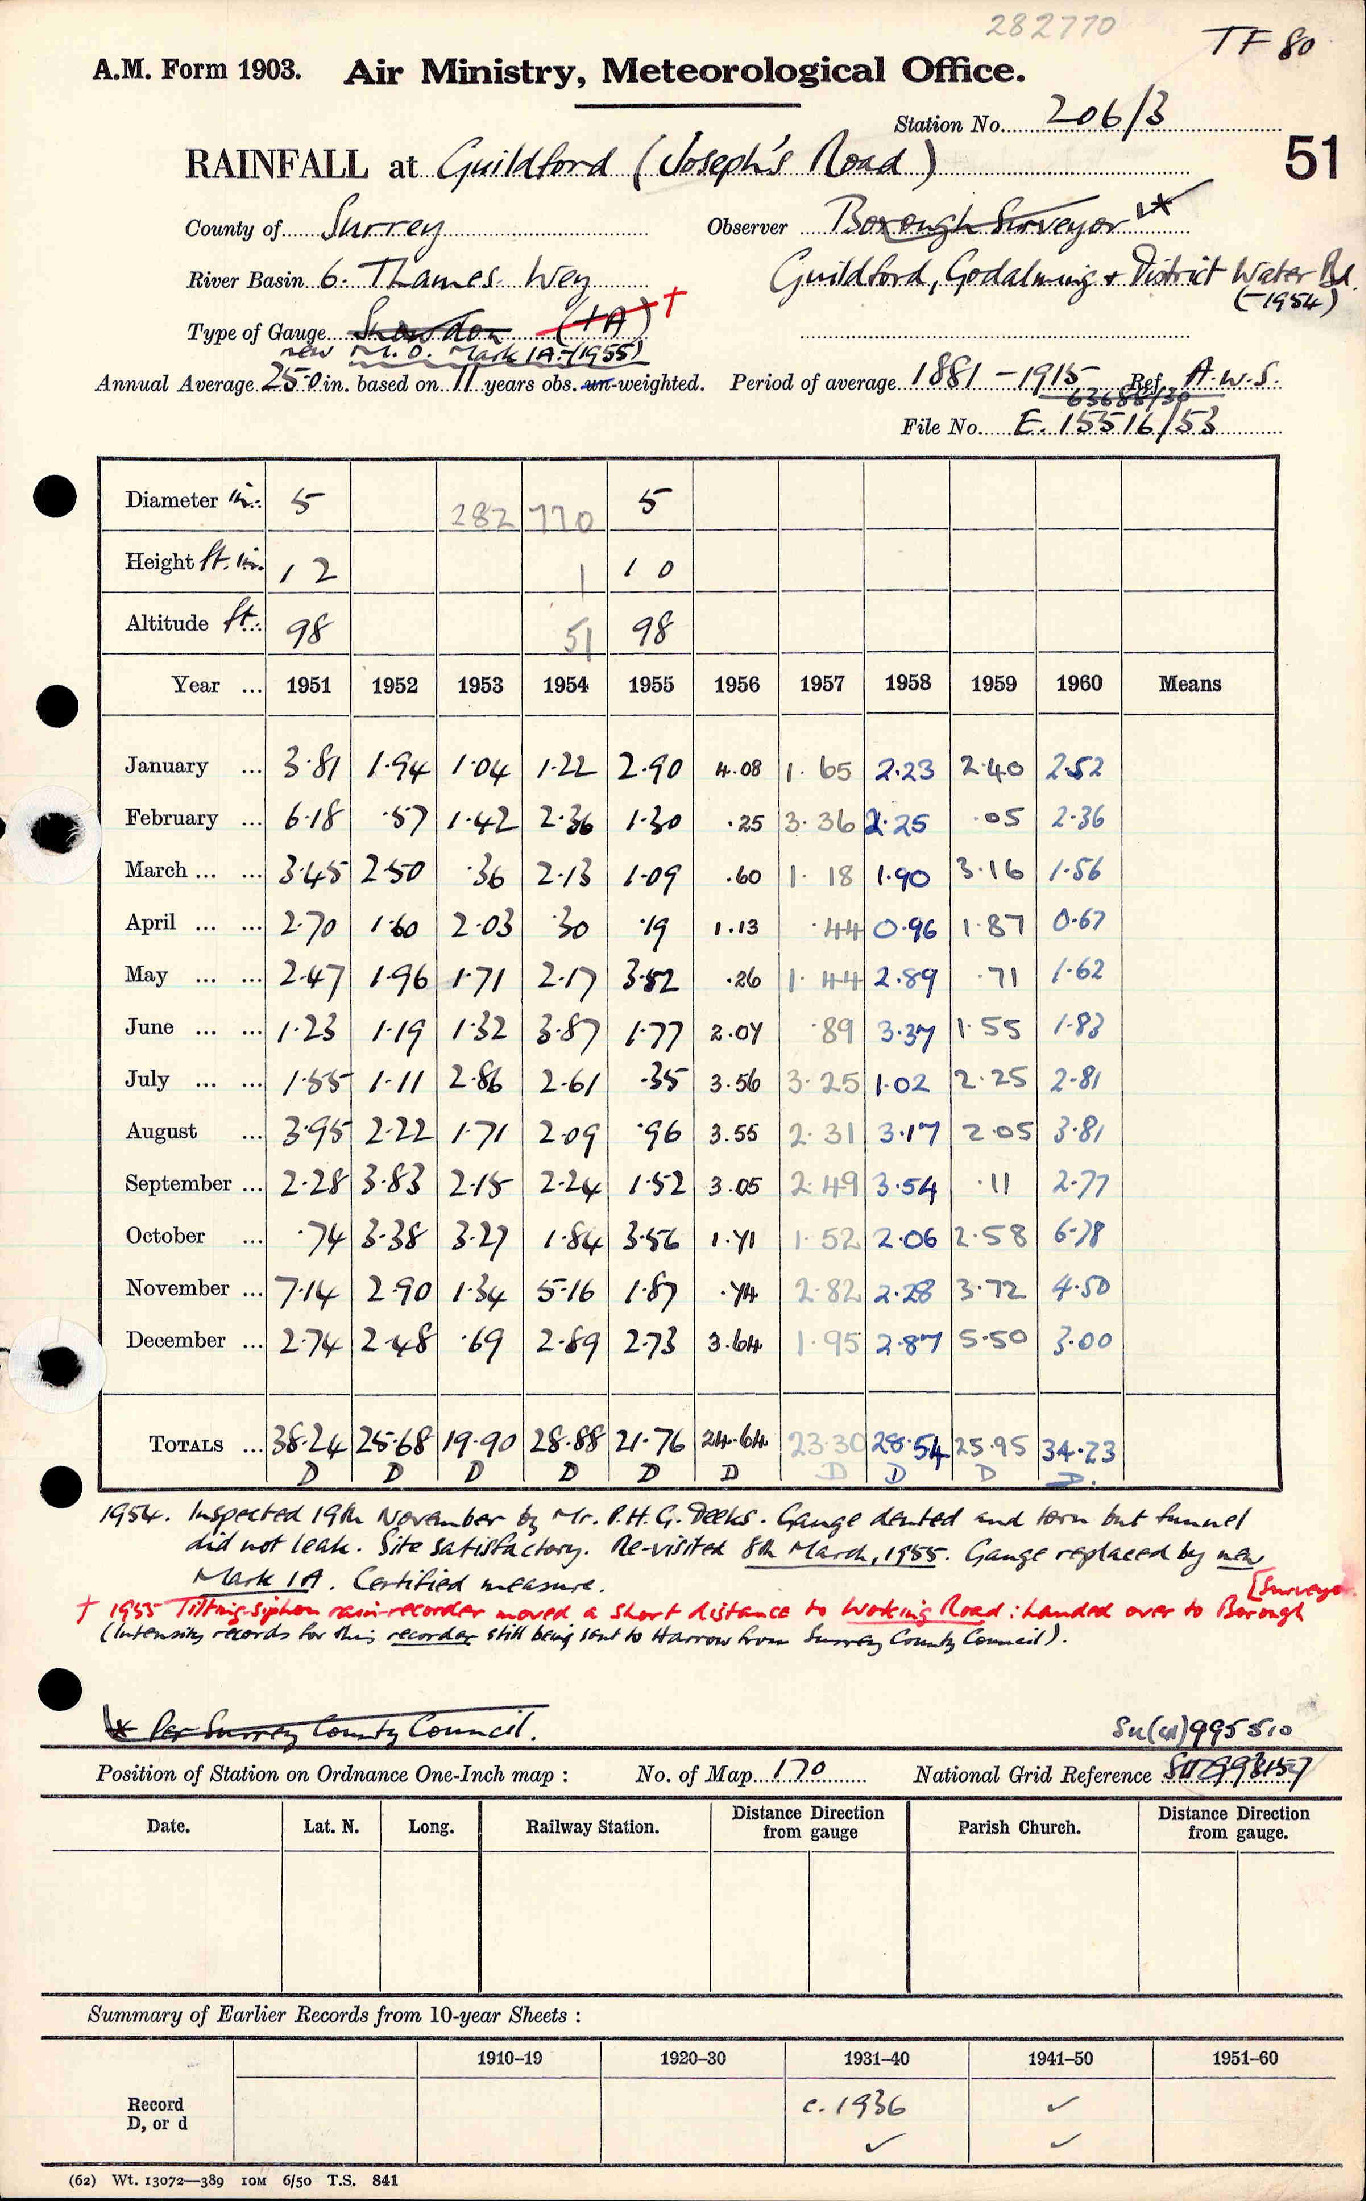 282770
TF 80
A.M. Form 1903. Air Ministry, Meteorological Office.
Station No. 206/3
51
RAINFALL at Guildford (Joseph's Road)
County of Surrey Observer Borough Surveyor
River Basin 6. Thames. Wey Guildford, Godalming + District Water Bd.
(-1954)
Type of Gauge Snowdon (+A) †
new M.O. Mark 1A-(1955)
Annual Average 25.0 in. based on 11 years obs. un-weighted. Period of average 1881-1915 Ref. A.W.S.
63688/30
File No. E. 15516/53
Diameter in. 5 282 770 5
Height ft. in. 1 2 1 1 0
Altitude ft. 98 51 98
Year ... 1951 1952 1953 1954 1955 1956 1957 1958 1959 1960 Means
January ... 3.81 1.94 1.04 1.22 2.90 4.08 1.65 2.23 2.40 2.52
February ... 6.18 .57 1.42 2.36 1.30 .25 3.36 2.25 .05 2.36
March ... ... 3.45 2.50 .36 2.13 1.09 .60 1.18 1.90 3.16 1.56
April ... ... 2.70 1.60 2.03 .30 .19 1.13 .44 0.96 1.87 0.67
May ... ... 2.47 1.96 1.71 2.17 3.52 .26 1.44 2.89 .71 1.62
June ... ... 1.23 1.19 1.32 3.87 1.77 2.07 .89 3.37 1.55 1.83
July ... ... 1.55 1.11 2.86 2.61 .35 3.56 3.25 1.02 2.25 2.81
August ... 3.95 2.22 1.71 2.09 .96 3.55 2.31 3.17 2.05 3.81
September ... 2.28 3.83 2.15 2.24 1.52 3.05 2.49 3.54 .11 2.77
October ... .74 3.38 3.27 1.84 3.56 1.71 1.52 2.06 2.58 6.78
November ... 7.14 2.90 1.34 5.16 1.87 .74 2.82 2.28 3.72 4.50
December ... 2.74 2.48 .69 2.89 2.73 3.64 1.95 2.87 5.50 3.00
TOTALS ... 38.24 25.68 19.90 28.88 21.76 24.64 23.30 28.54 25.95 34.23
D D D D D D D D D D.
1954. Inspected 19th November by Mr. P.H.G. Deeks. Gauge dented and torn but funnel
did not leak. Site satisfactory. Re-visited 8th March, 1955. Gauge replaced by new
Mark 1A. Certified measure.
† 1955 Tilting-siphon rain-recorder moved a short distance to Woking Road: handed over to Borough [Surveyor.
(Intensity records for this recorder still being sent to Harrow from Surrey County Council).
* Per Surrey County Council.
995510
Position of Station on Ordnance One-Inch map : No. of Map 170 National Grid Reference
Date. Lat. N. Long. Railway Station. Distance Direction from gauge Parish Church. Distance Direction from gauge.
Summary of Earlier Records from 10-year Sheets :
1910–19 1920–30 1931–40 1941–50 1951–60
Record c. 1936 ✓
D, or d ✓ ✓
(62) Wt. 13072—389 10M 6/50 T.S. 841